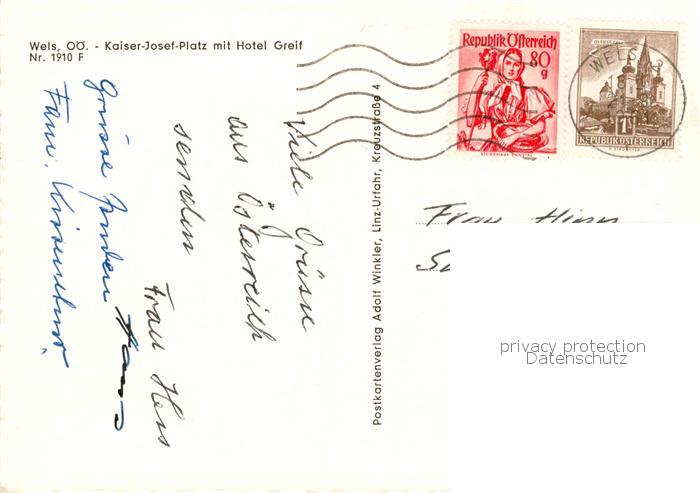 Wels, OÖ. - Kaiser-Josef-Platz mit Hotel Greif
Nr. 1910 F
Republik Österreich
80
g
WELS
1 S
REPUBLIK ÖSTERREICH
Viele Grüsse
aus Österreich
senden
Frau Hess
Grüsse senden
Fam.
Postkartenverlag Adolf Winkler, Linz-Urfahr, Kreuzstraße 4
Frau
privacy protection
Datenschutz